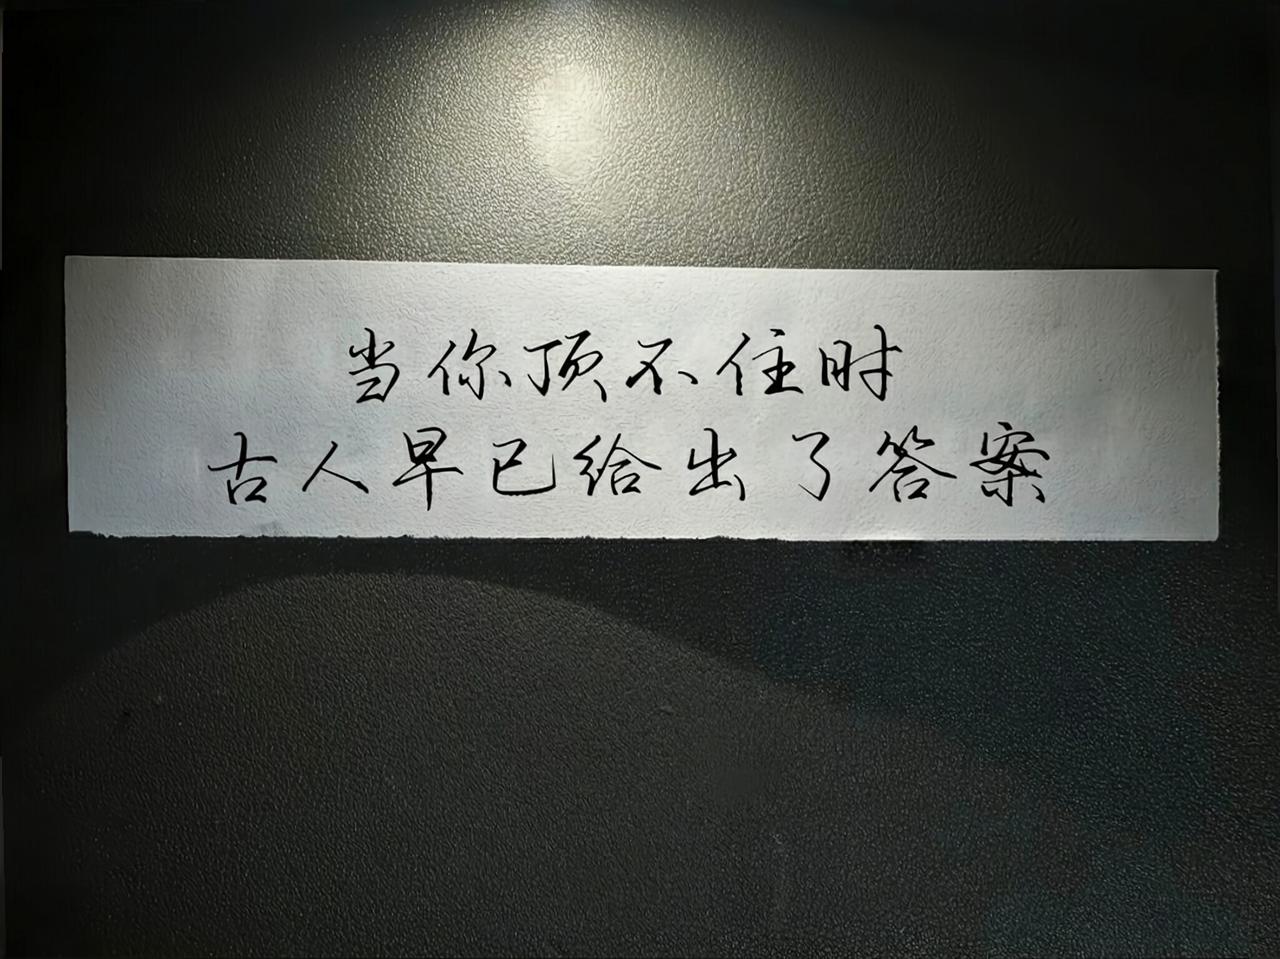 当你顶不住时
古人早已给出了答案